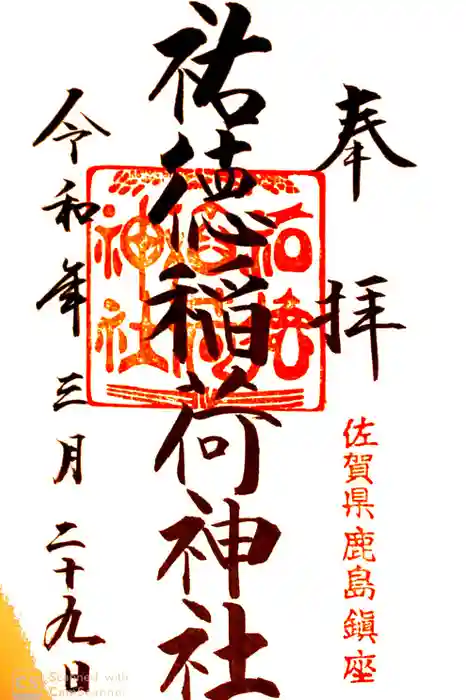 奉拝
佐賀県鹿島鎮座
祐徳稲荷神社
令和年三月二十九日
Scanned with
CamScanner